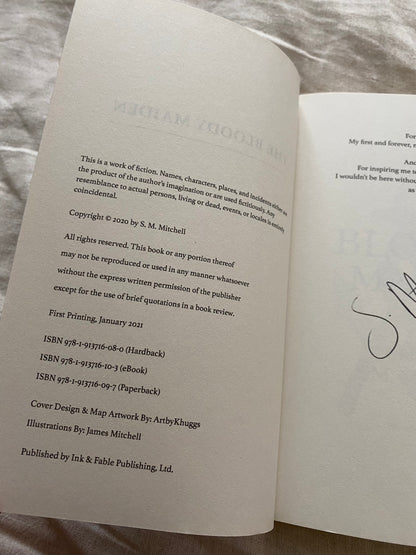 This is a work of fiction. Names, characters, places, and incidents either are
the product of the author's imagination or are used fictitiously. Any
resemblance to actual persons, living or dead, events, or locales is entirely
coincidental.
Copyright © 2020 by S. M. Mitchell
All rights reserved. This book or any portion thereof
may not be reproduced or used in any manner whatsoever
without the express written permission of the publisher
except for the use of brief quotations in a book review.
First Printing, January 2021
ISBN 978-1-913716-08-0 (Hardback)
ISBN 978-1-913716-10-3 (eBook)
ISBN 978-1-913716-09-7 (Paperback)
Cover Design & Map Artwork By: ArtbyKhuggs
Illustrations By: James Mitchell
Published by Ink & Fable Publishing, Ltd.
For
My first and forever,
And
For inspiring me to
I wouldn't be here without
as
S. M